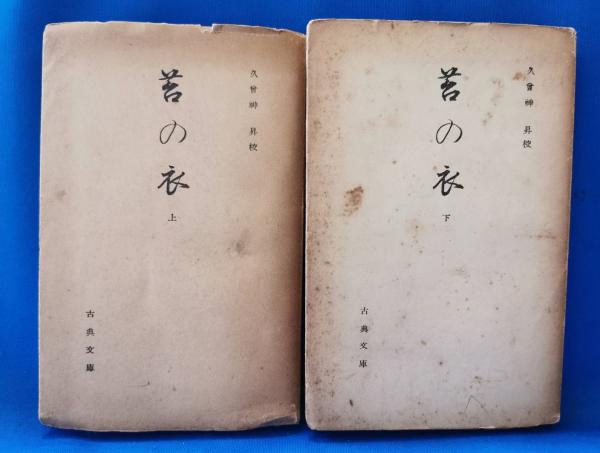 久曾神 昇校
苔の衣
上
古典文庫
久曾神 昇校
苔の衣
下
古典文庫